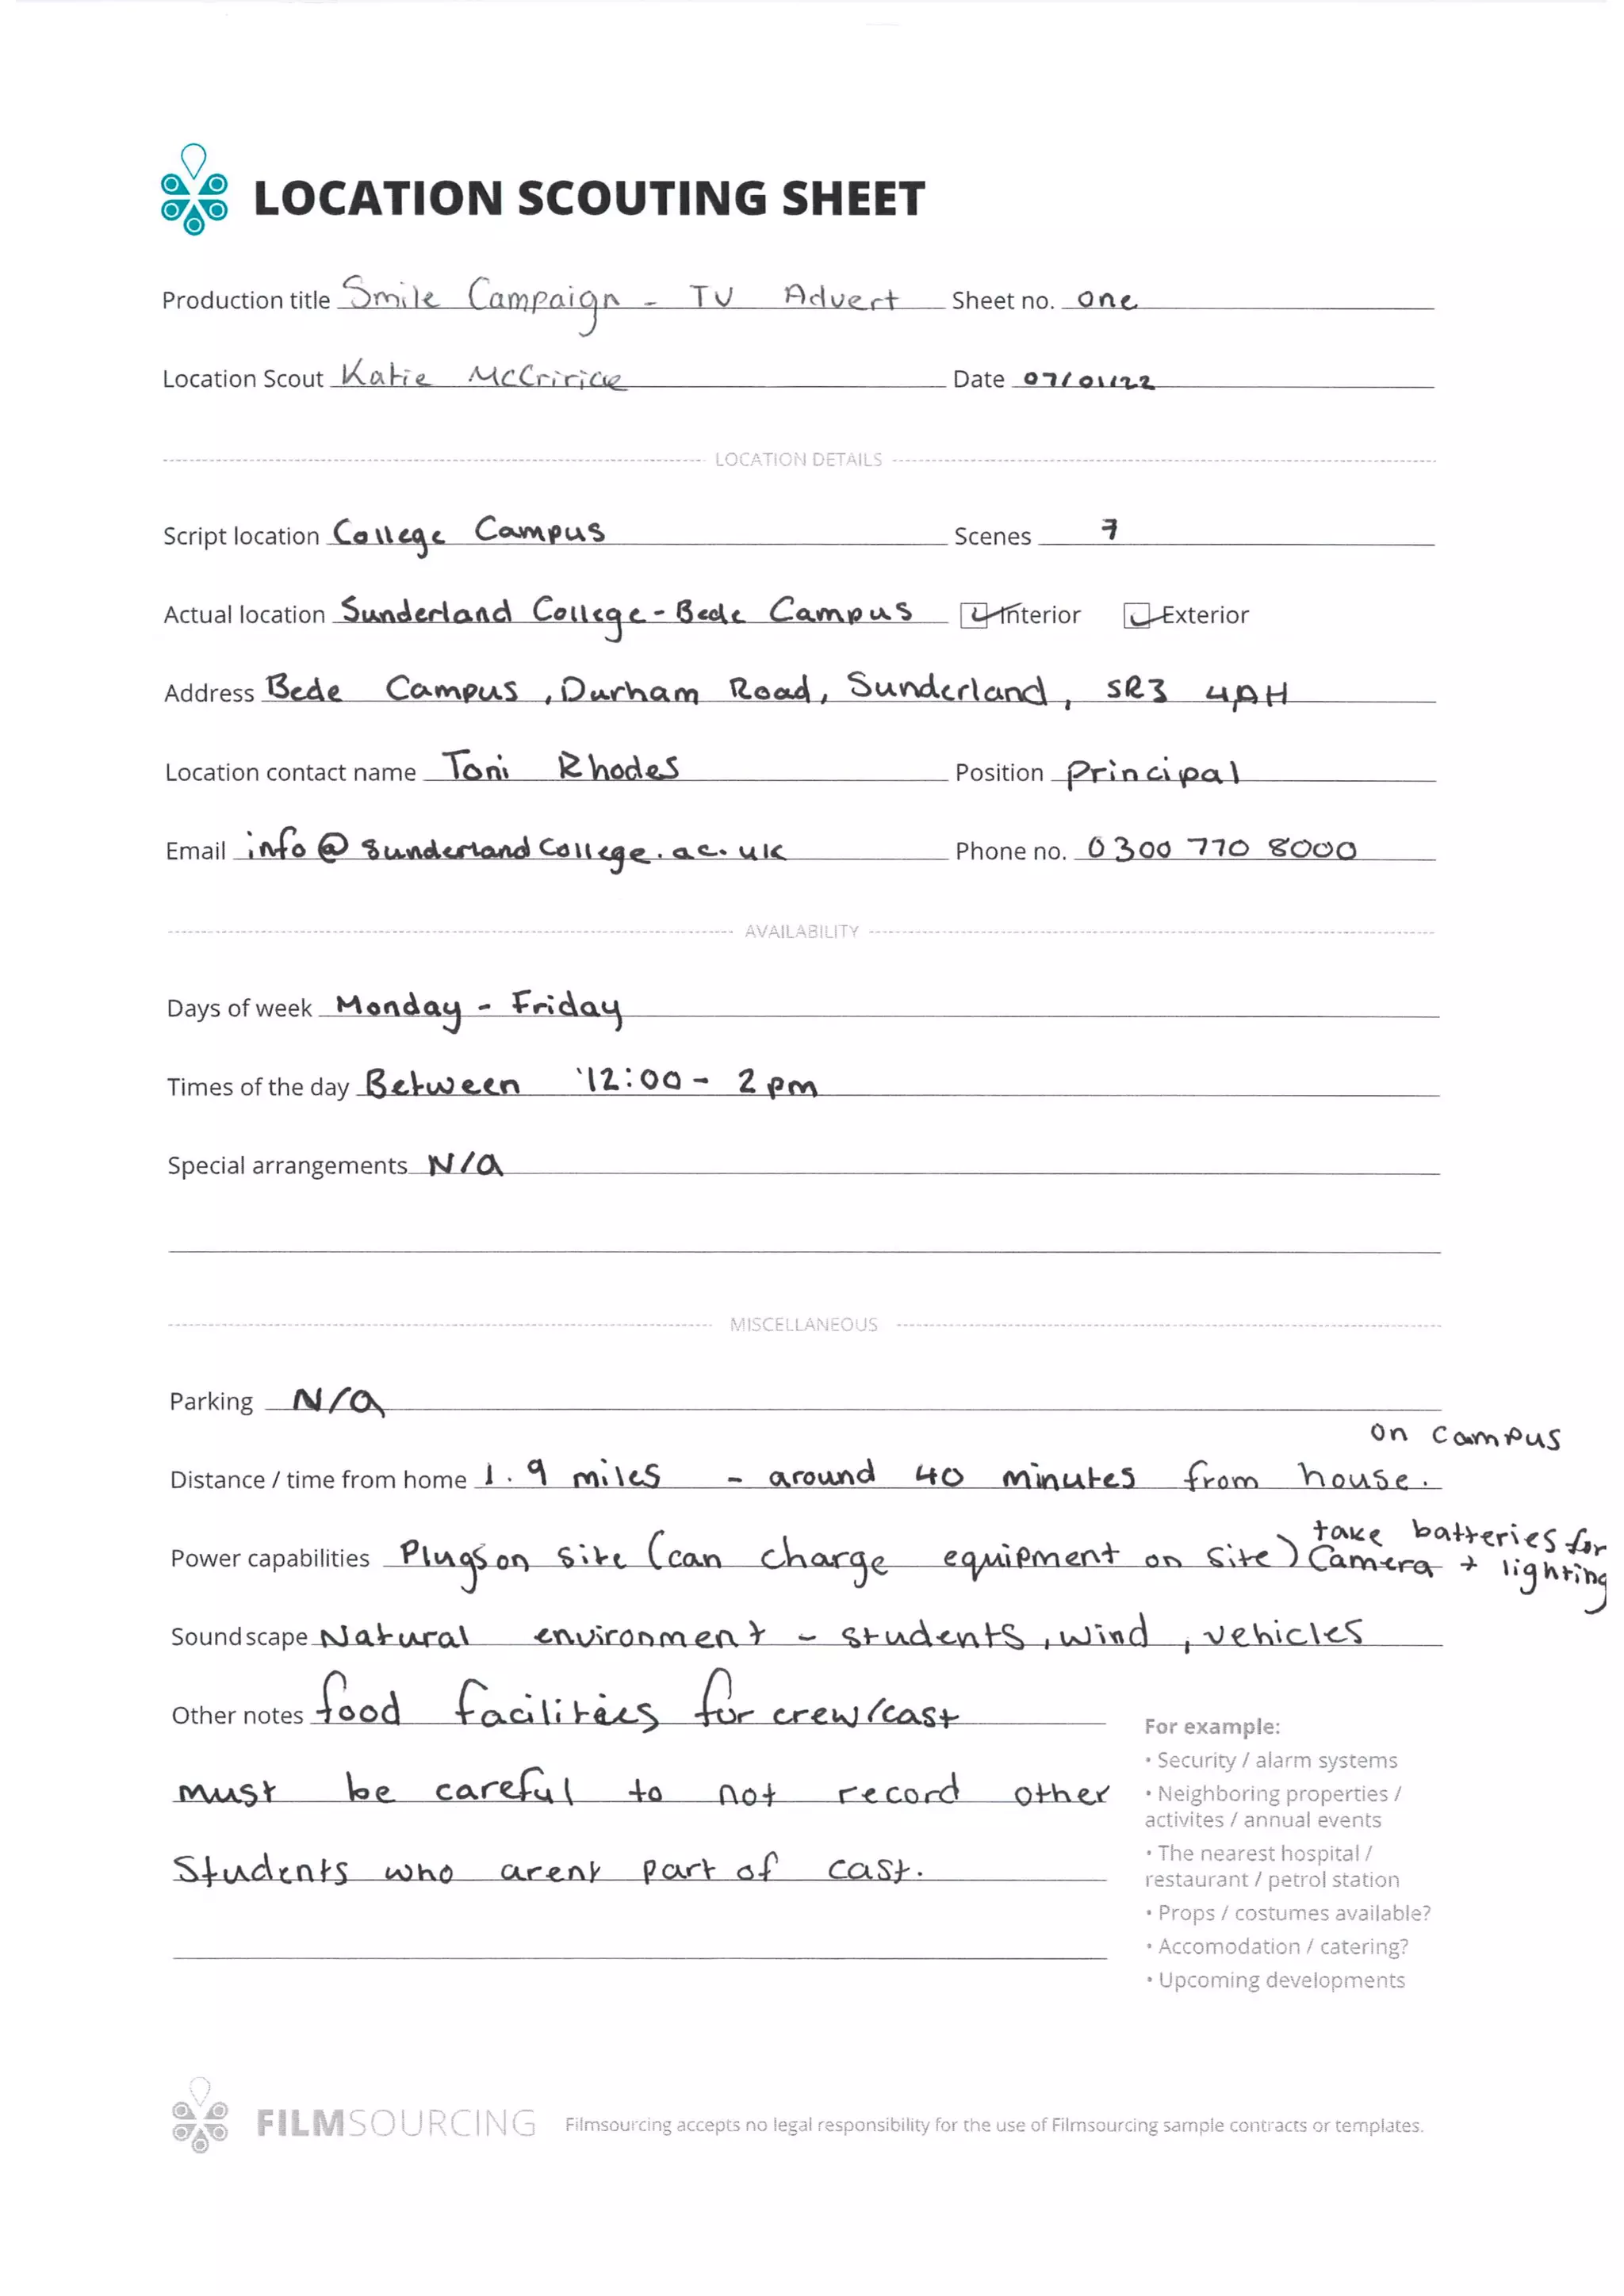 LOCATION SCOUTING SHEET
Production title Smile Campaign - TV Advert Sheet no. one
Location Scout Katie McCririck Date 07/01/22
LOCATION DETAILS
Script location College Campus Scenes 7
Actual location Sunderland College - Bede Campus Interior Exterior
Address Bede Campus, Durham Road, Sunderland, SR3 4AH
Location contact name Toni Rhodes Position principal
Email info@sunderlandCollege.ac.uk Phone no. 0300 770 8000
AVAILABILITY
Days of week Monday - Friday
Times of the day Between 12:00 - 2pm
Special arrangements N/a
MISCELLANEOUS
Parking N/a
on campus
Distance / time from home 1.9 miles - around 40 minutes from house.
take batteries for
Power capabilities Plugs on site (can charge equipment on site) Camera + lighting
Soundscape Natural environment - students, wind, vehicles
Other notes food facilities for crew/cast
must be careful to not record other
Students who arent part of cast.
For example:
• Security / alarm systems
• Neighboring properties /
activites / annual events
• The nearest hospital /
restaurant / petrol station
• Props / costumes available?
• Accomodation / catering?
• Upcoming developments
FILMSOURCING Filmsourcing accepts no legal responsibility for the use of Filmsourcing sample contracts or templates.